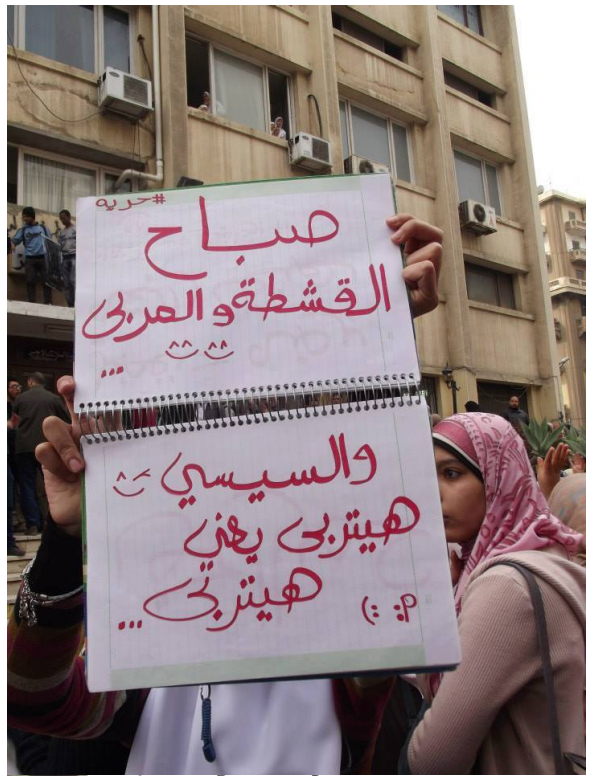 #حرية
صباح
القشطة والمربى
^^ ^^
...
والسيسي ^^
هيتربى يعني
هيتربى ...
(: :P